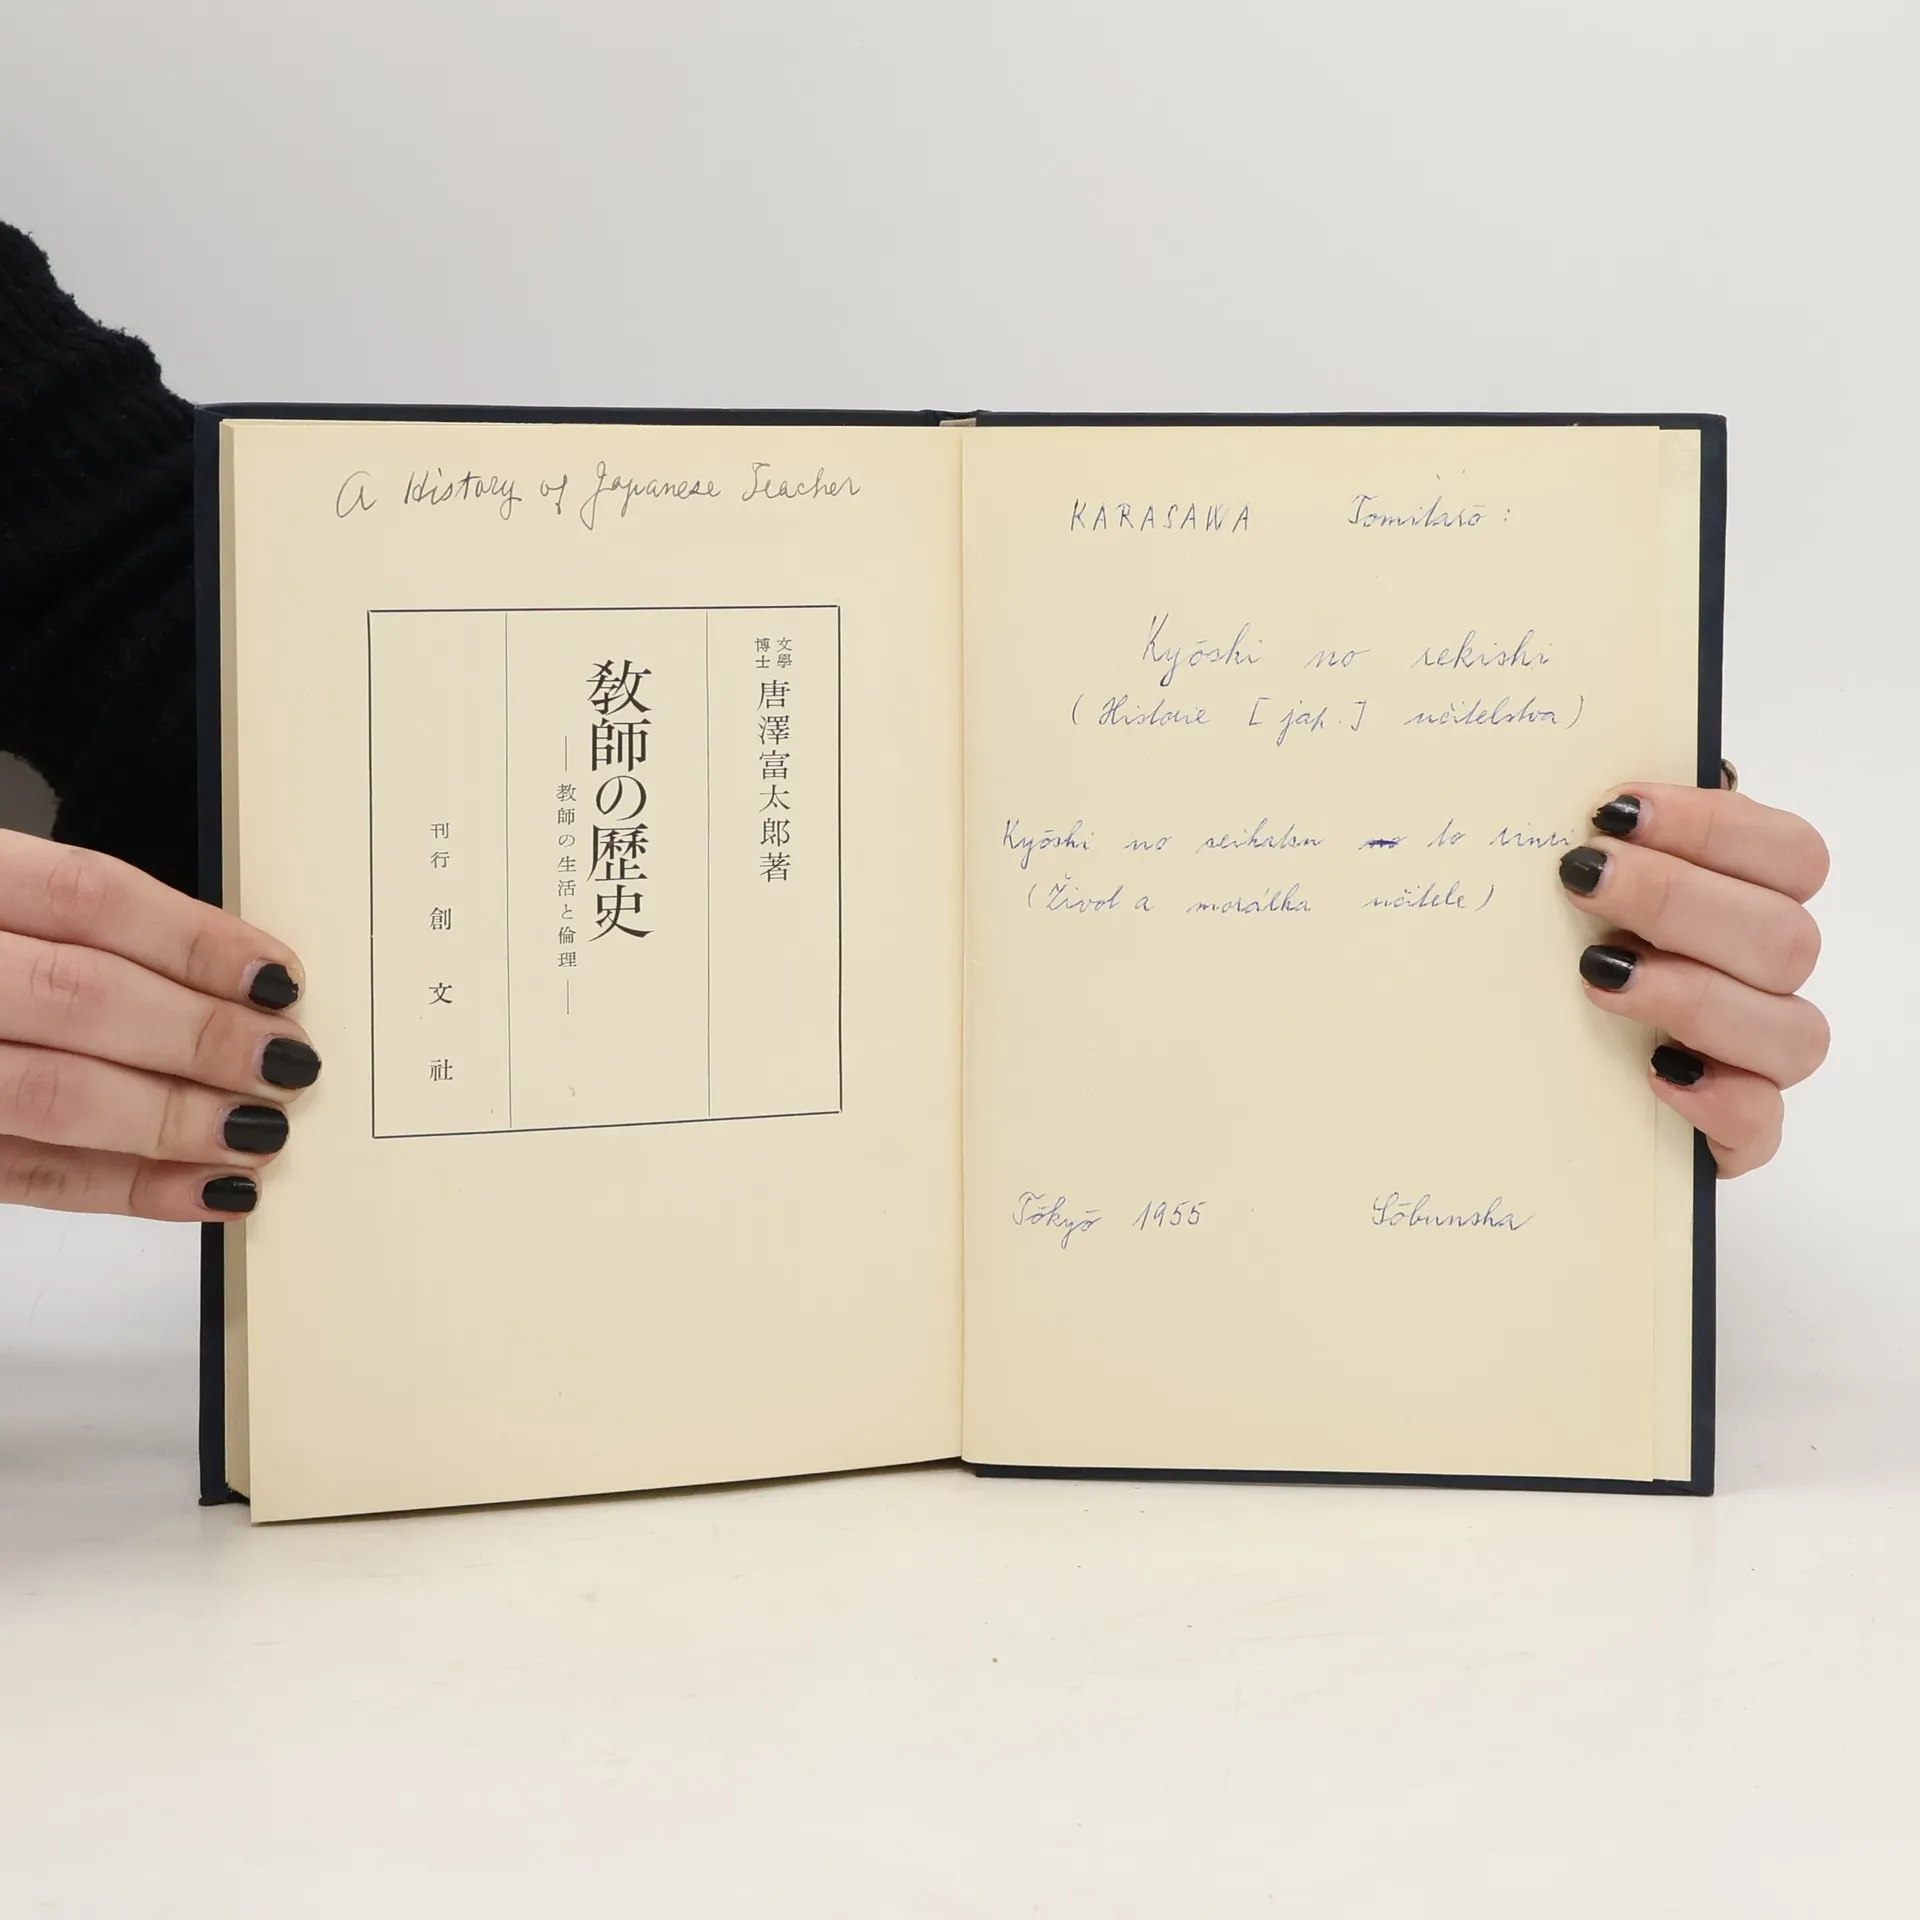 A History of Japanese Teacher
文學博士 唐澤富太郎著
教師の歷史
—教師の生活と倫理—
刊行 創文社
KARASAWA Tomitarō:
Kyōshi no rekishi
(Historie [jap.] učitelstva)
Kyōshi no seikatsu no to rinri
(Život a morálka učitele)
Tōkyō 1955 Sōbunsha